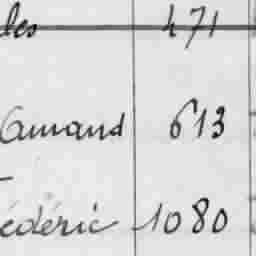 les 471
Amand 613
édéric 1080